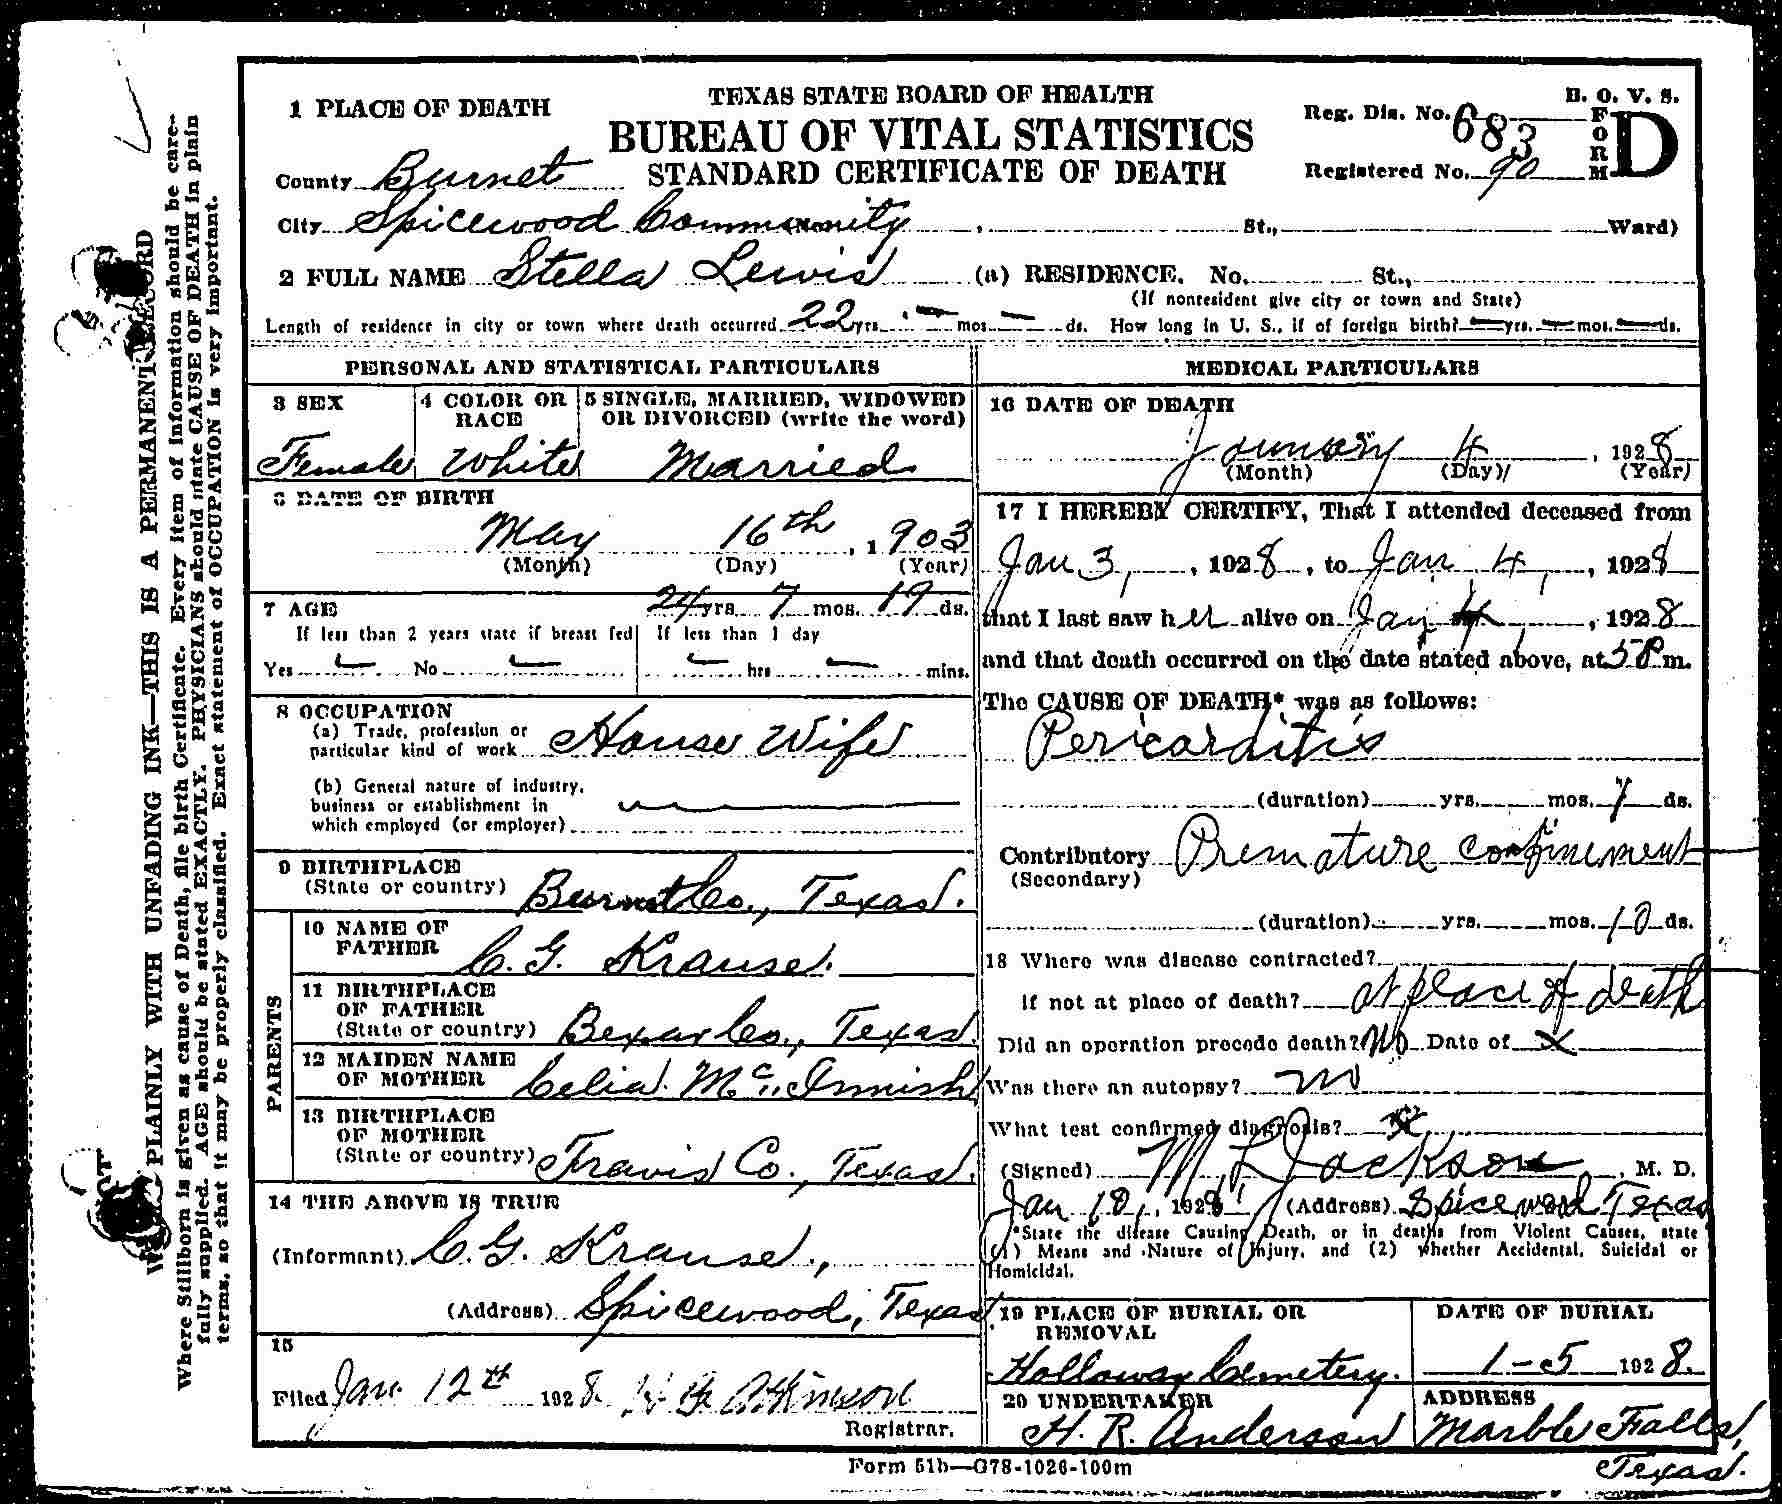 TEXAS STATE BOARD OF HEALTH
BUREAU OF VITAL STATISTICS
STANDARD CERTIFICATE OF DEATH
B. O. V. S.
FORM D
Reg. Dis. No. 683
Registered No. 90
1 PLACE OF DEATH
County Burnet
City Spicewood Community (No. , St., Ward)
2 FULL NAME Stella Lewis (a) RESIDENCE. No. St.,
(If nonresident give city or town and State)
Length of residence in city or town where death occurred 22 yrs. — mos. — ds. How long in U. S., if of foreign birth? — yrs. — mos. — ds.
PERSONAL AND STATISTICAL PARTICULARS
3 SEX
Female
4 COLOR OR RACE
White
5 SINGLE, MARRIED, WIDOWED
OR DIVORCED (write the word)
Married
6 DATE OF BIRTH
May 16th, 1903
(Month) (Day) (Year)
7 AGE 24 yrs. 7 mos. 19 ds.
If less than 2 years state if breast fed
Yes — No —
If less than 1 day
— hrs — mins.
8 OCCUPATION
(a) Trade, profession or
particular kind of work House Wife
(b) General nature of industry,
business or establishment in
which employed (or employer)
9 BIRTHPLACE
(State or country) Burnet Co., Texas.
PARENTS
10 NAME OF
FATHER C. G. Krause.
11 BIRTHPLACE
OF FATHER
(State or country) Bexar Co., Texas.
12 MAIDEN NAME
OF MOTHER Celia Mc Innish
13 BIRTHPLACE
OF MOTHER
(State or country) Travis Co., Texas.
14 THE ABOVE IS TRUE
(Informant) C. G. Krause,
(Address) Spicewood, Texas
15
Filed Jan. 12th 1928. Atkinson
Registrar.
MEDICAL PARTICULARS
16 DATE OF DEATH
January 4, 1928
(Month) (Day) (Year)
17 I HEREBY CERTIFY, That I attended deceased from
Jan 3, , 1928, to Jan 4, , 1928
that I last saw her alive on Jan 4, 1928
and that death occurred on the date stated above, at 5 P m.
The CAUSE OF DEATH* was as follows:
Pericarditis
(duration) yrs. mos. 7 ds.
Contributory Premature confinement
(Secondary)
(duration) yrs. mos. 10 ds.
18 Where was disease contracted?
if not at place of death? at place of death
Did an operation precede death? No Date of X
Was there an autopsy? no
What test confirmed diagnosis? X
(Signed) M L Jackson, M. D.
Jan 10, 1928, (Address) Spicewood Texas
*State the disease Causing Death, or in deaths from Violent Causes, state
(1) Means and Nature of Injury, and (2) whether Accidental, Suicidal or
Homicidal.
19 PLACE OF BURIAL OR
REMOVAL
Holloway Cemetery.
DATE OF BURIAL
1-5 1928.
20 UNDERTAKER
H. R. Anderson
ADDRESS
Marble Falls,
Texas.
Form 51b—G78-1026-100m
PLAINLY WITH UNFADING INK—THIS IS A PERMANENT RECORD
Where Stillborn is given as cause of Death, file birth Certificate. Every item of information should be care-
fully supplied. AGE should be stated EXACTLY. PHYSICIANS should state CAUSE OF DEATH in plain
terms, so that it may be properly classified. Exact statement of OCCUPATION is very important.